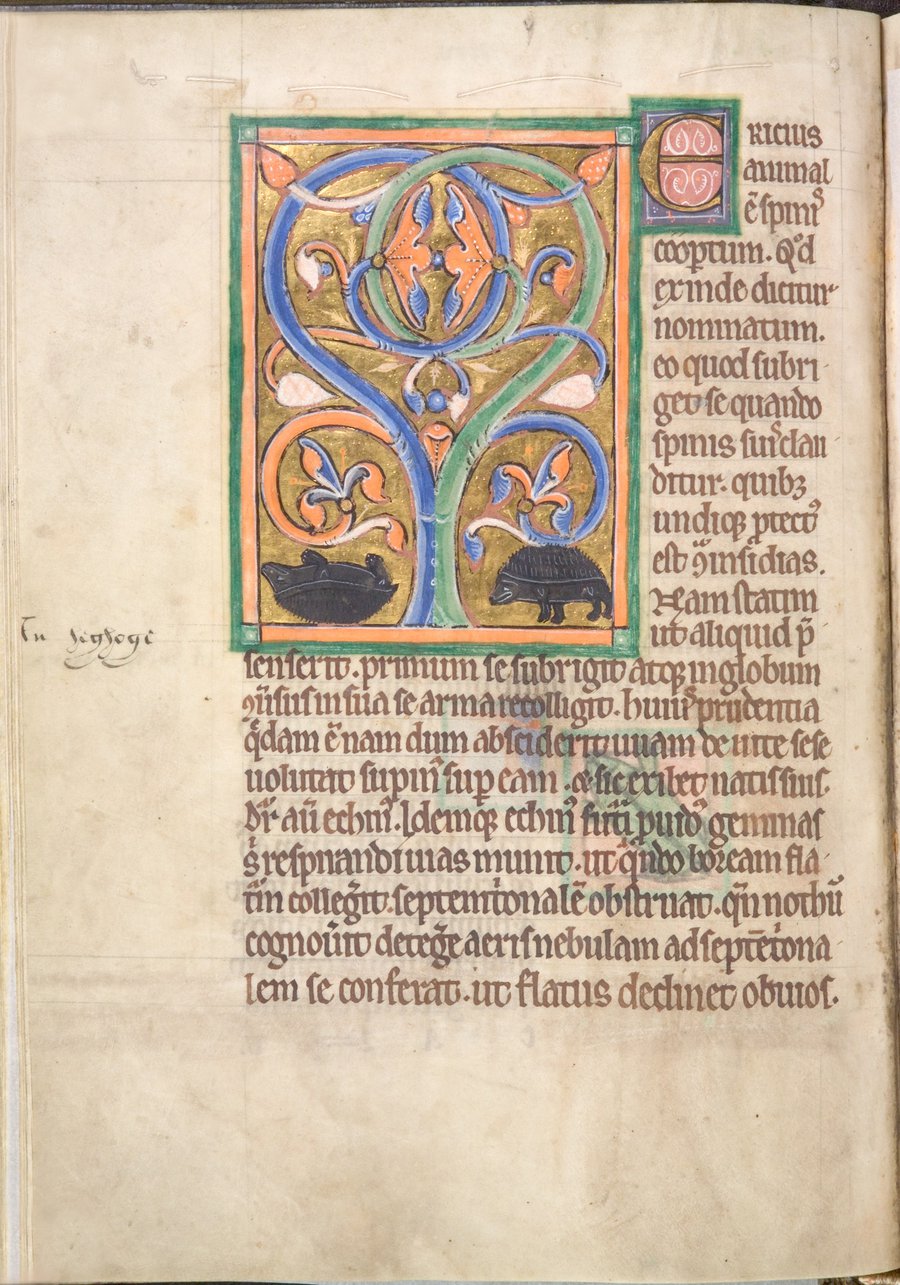 ERICIUS
animal
ē spinis
cooptum. Qd
exinde dicitur
nominatum.
eo quod subri-
get se quando
spinis suis clau
ditur. quibz
undiqz ptectus
est ꝯ insidias.
Nam statim
ut aliquid p̄
In heghoge
senserit. primum se subrigit atqz in globum
ꝯuersus in sua se arma recolligit. huius prudentia
qdam ē nam dum absciderit uuam de uite sese
uolutat supinus sup eam. & sic exibet natis suis.
Dr̄ aū echinus. Idemqz echinus futuri puidus geminas
sibi respirandi uias munit. ut qndo boream fla-
tum collegerit. septemtrionalē obstruat. qn nothū
cognouerit detegere aeris nebulam ad septētriona-
lem se conferat. ut flatus declinet obuios.